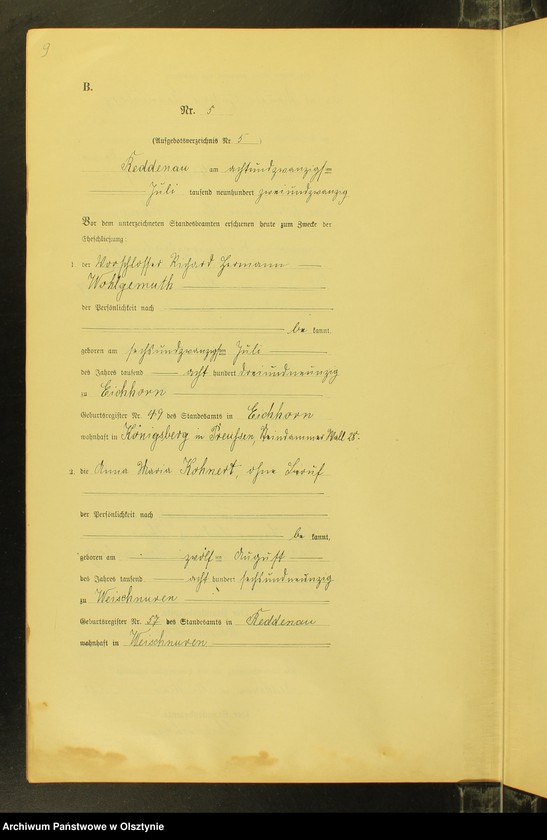 9
B.
Nr. 5
(Aufgebotsverzeichnis Nr. 5)
Reddenau am achtundzwanzigs=
Juli tausend neunhundert zweiundzwanzig
Vor dem unterzeichneten Standesbeamten erschienen heute zum Zwecke der
Eheschließung:
1. der Vorschlosser Richard Hermann
Wohlgemuth
der Persönlichkeit nach
be kannt,
geboren am sechsundzwanzigs= Juli
des Jahres tausend acht hundert dreiundneunzig
zu Eichhorn
Geburtsregister Nr. 49 des Standesamts in Eichhorn
wohnhaft in Königsberg in Preußen, Steindammer Wall 28.
2. die Anna Maria Kohnert, ohne Beruf
der Persönlichkeit nach
be kannt,
geboren am zwölf= August
des Jahres tausend acht hundert sechsundneunzig
zu Weischnuren
Geburtsregister Nr. 57 des Standesamts in Reddenau
wohnhaft in Weischnuren
Archiwum Państwowe w Olsztynie